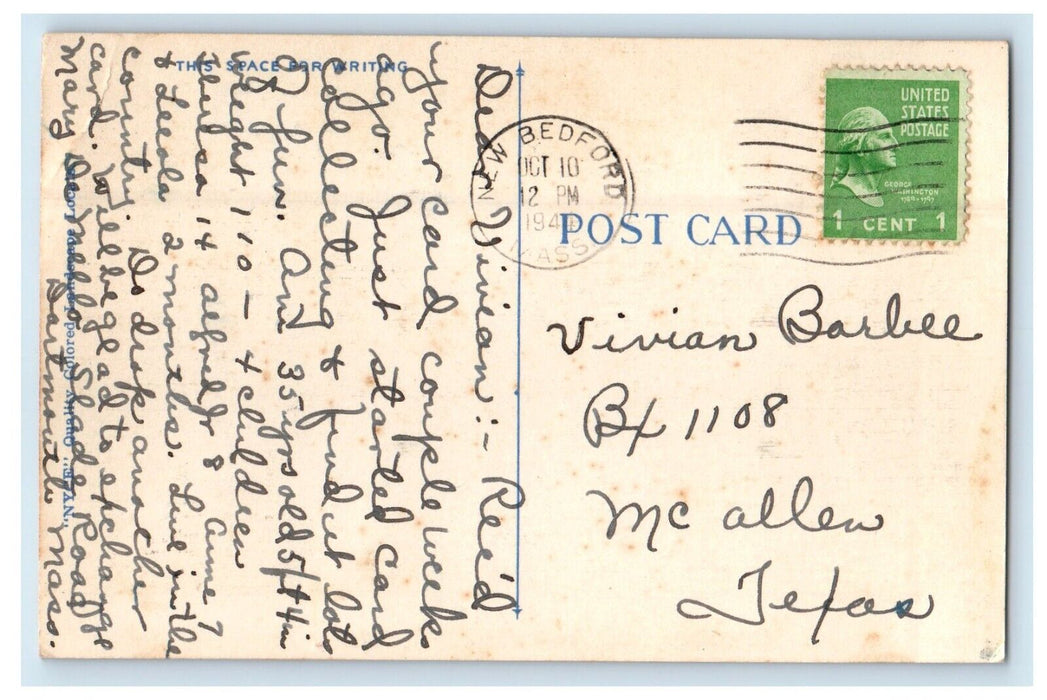 THIS SPACE FOR WRITING
Dear Vivian:- Rec'd
your card couple weeks
ago. Just started card
collecting & find it lots
of fun. Am 35 yrs old 5ft 4in
weight 110 - 4 children
14 Alfred Jr 8 Anne 7
& Leola 2 months. Live in the
country. Do drop another
card. Will be glad to exchange
Mary Slade Road
Dartmouth Mass.
"NYCE" Quality Colored Landscape Local
NEW BEDFORD
OCT 10
12 PM
MASS
UNITED
STATES
POSTAGE
GEORGE
WASHINGTON
1 CENT 1
POST CARD
Vivian Barbee
Bx 1108
Mc allen
Texas